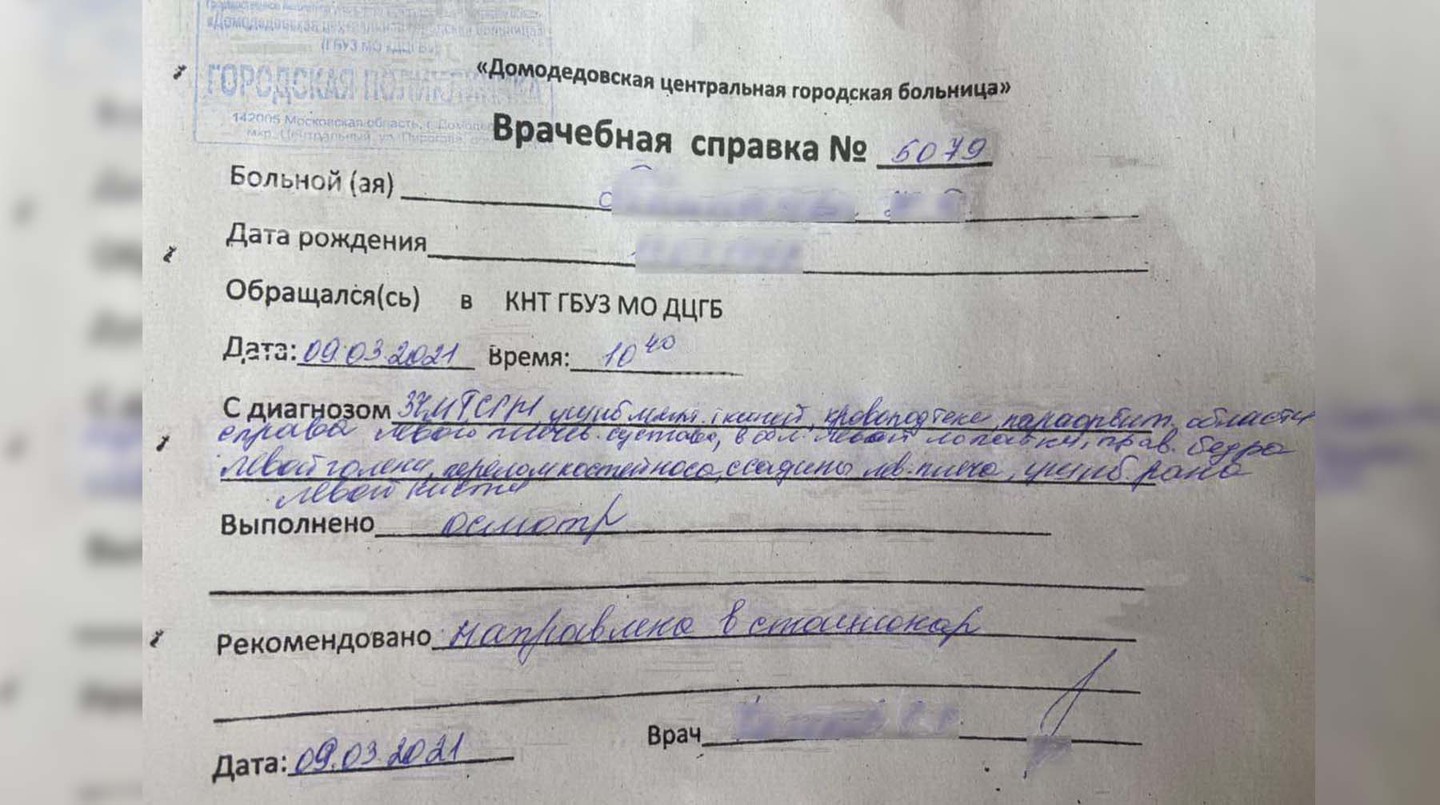 «Домодедовская центральная городская больница»
(ГБУЗ МО «ДЦГБ»)
ГОРОДСКАЯ ПОЛИКЛИНИКА
142005 Московская область, г. Домодед
мкр. Центральный, ул. Пирогова,
«Домодедовская центральная городская больница»
Врачебная справка № 5079
Больной (ая)
Дата рождения
Обращался(сь) в КНТ ГБУЗ МО ДЦГБ
Дата: 09.03.2021 Время: 10 40
С диагнозом ЗЧМТ СГМ ушиб мягк. кровоподтеки, параорбит. области
справа левого плечев. сустава, в обл. левой лопатки, прав. бедра
левой голени, перелом костей носа, ссадины лев. плеча, ушиб. рана
левой кисти
Выполнено осмотр
Рекомендовано направлена в стационар
Врач
Дата: 09.03.2021